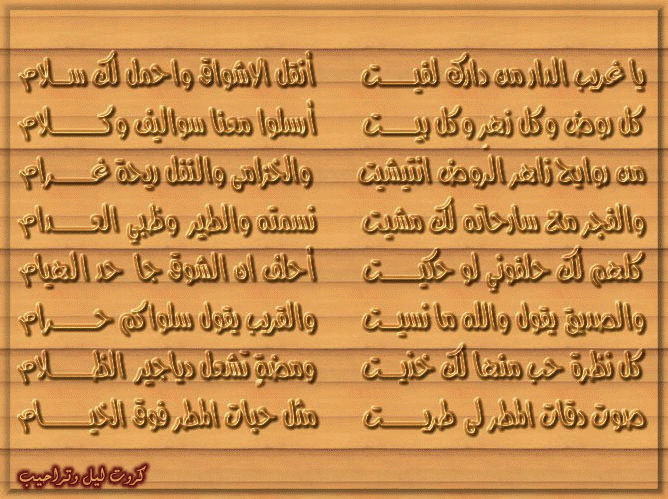 يا غريب الدار من دارك لفيـــت أنقل الاشواق واحمل لك ســلام
كل روض وكل نهرٍ وكل بيـــت أرسلوا معنا سواليف وكـــــلام
من روايح زاهر الروض انتيشيت والخزامى والنفل ريحة غـــرام
والفجر مع سارحاته لك مشيت نسمته والطير وظبي العـــدام
كلهم لك حلفوني لو حكيـــت أحلف ان الشوق جا حد الهيام
والصديق يقول والله ما نسيـت والقريب يقول سلواكم حــــرام
كل نظرة حب منها لك خذيـــت ومضةٍ تشعل دياجير الظـــلام
صوت دقات المطر لى طريـــت مثل حبات المطر فوق الخيـــام
كروت ليل وتراحيب